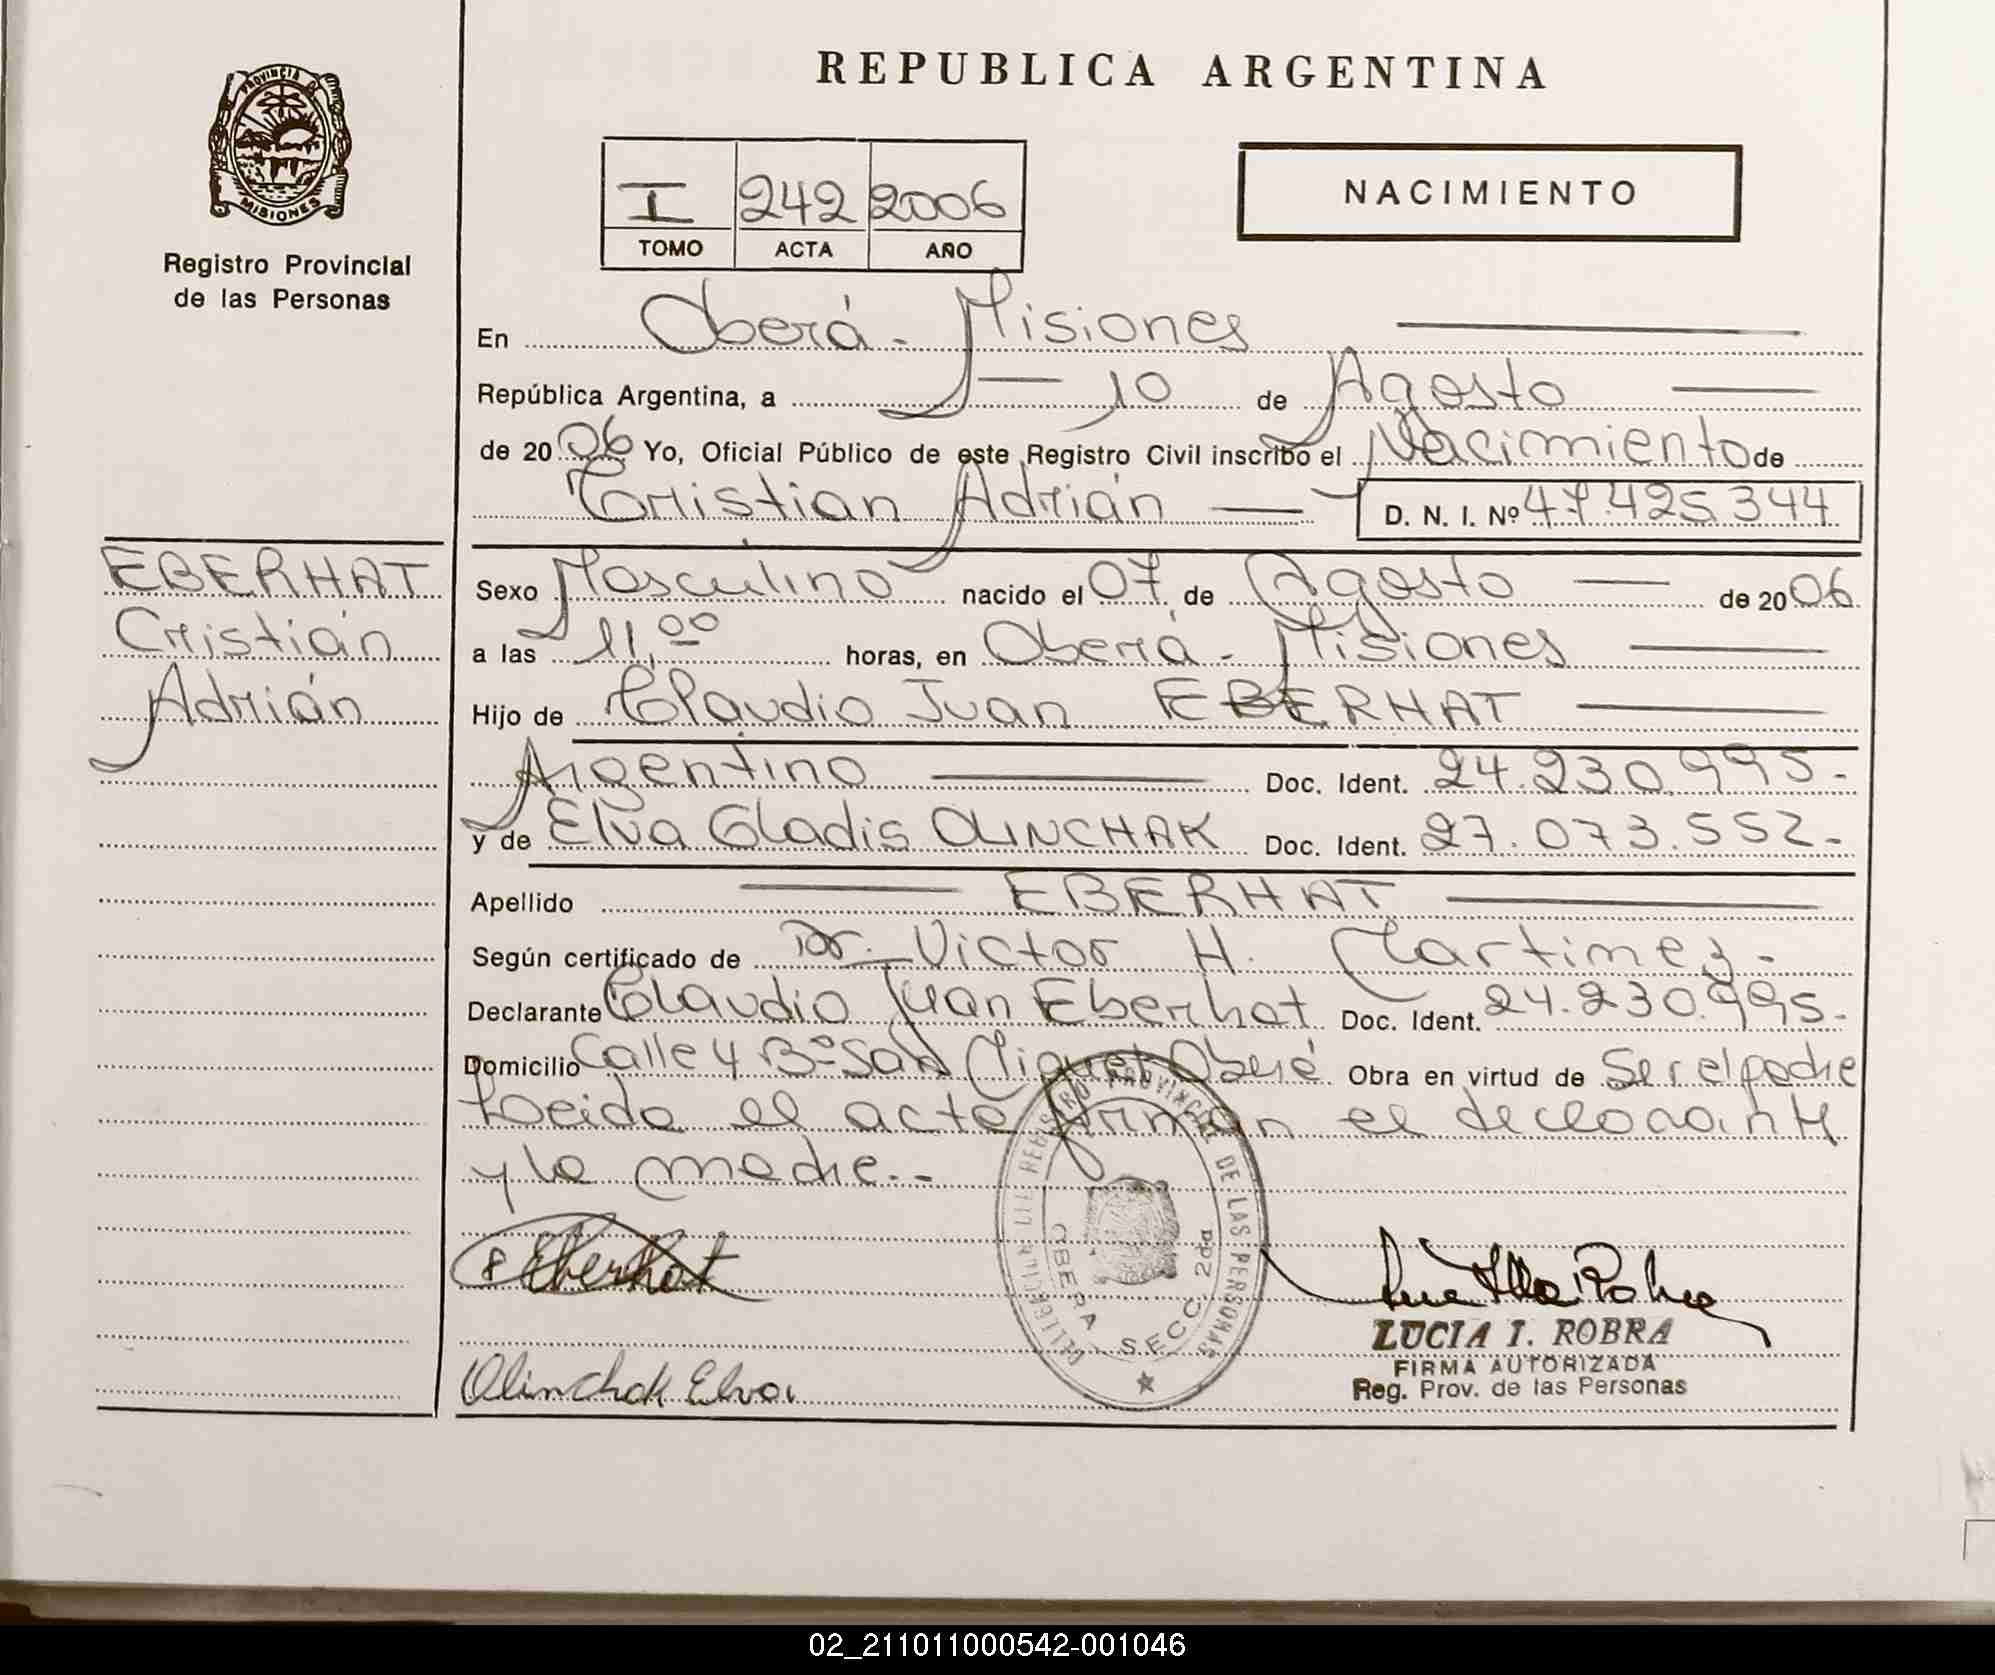 REPUBLICA ARGENTINA
PROVINCIA DE
MISIONES
Registro Provincial
de las Personas
I 242 2006
TOMO ACTA AÑO
NACIMIENTO
En Oberá - Misiones
República Argentina, a 10 de Agosto
de 2006 Yo, Oficial Público de este Registro Civil inscribo el Nacimiento de
Cristian Adrián D. N. I. Nº 47.425.344
EBERHAT
Cristián
Adrián
Sexo Masculino nacido el 07 de Agosto de 2006
a las 11,00 horas, en Oberá - Misiones
Hijo de Claudio Juan EBERHAT
Argentino Doc. Ident. 24.230.995.-
y de Elva Gladis OLINCHAK Doc. Ident. 27.073.552.-
Apellido EBERHAT
Según certificado de Dr. Victor H. Martinez.-
Declarante Claudio Juan Eberhat Doc. Ident. 24.230.995.-
Domicilio Calle 4 Bº San Miguel Oberá Obra en virtud de Ser el padre
Leida el acta firman el declarante
y la madre.-
Eberhat
Olinchak Elva
REGISTRO PROVINCIAL DE LAS PERSONAS
OBERA SECC. 2da
LUCIA I. ROBRA
FIRMA AUTORIZADA
Reg. Prov. de las Personas
02_211011000542-001046